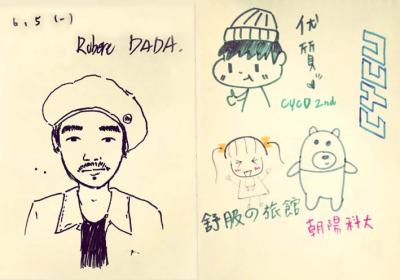 6,5(一)
Robere DADA.
优質
CYCU 2nd
CYCU
舒服の旅館
朝陽科大